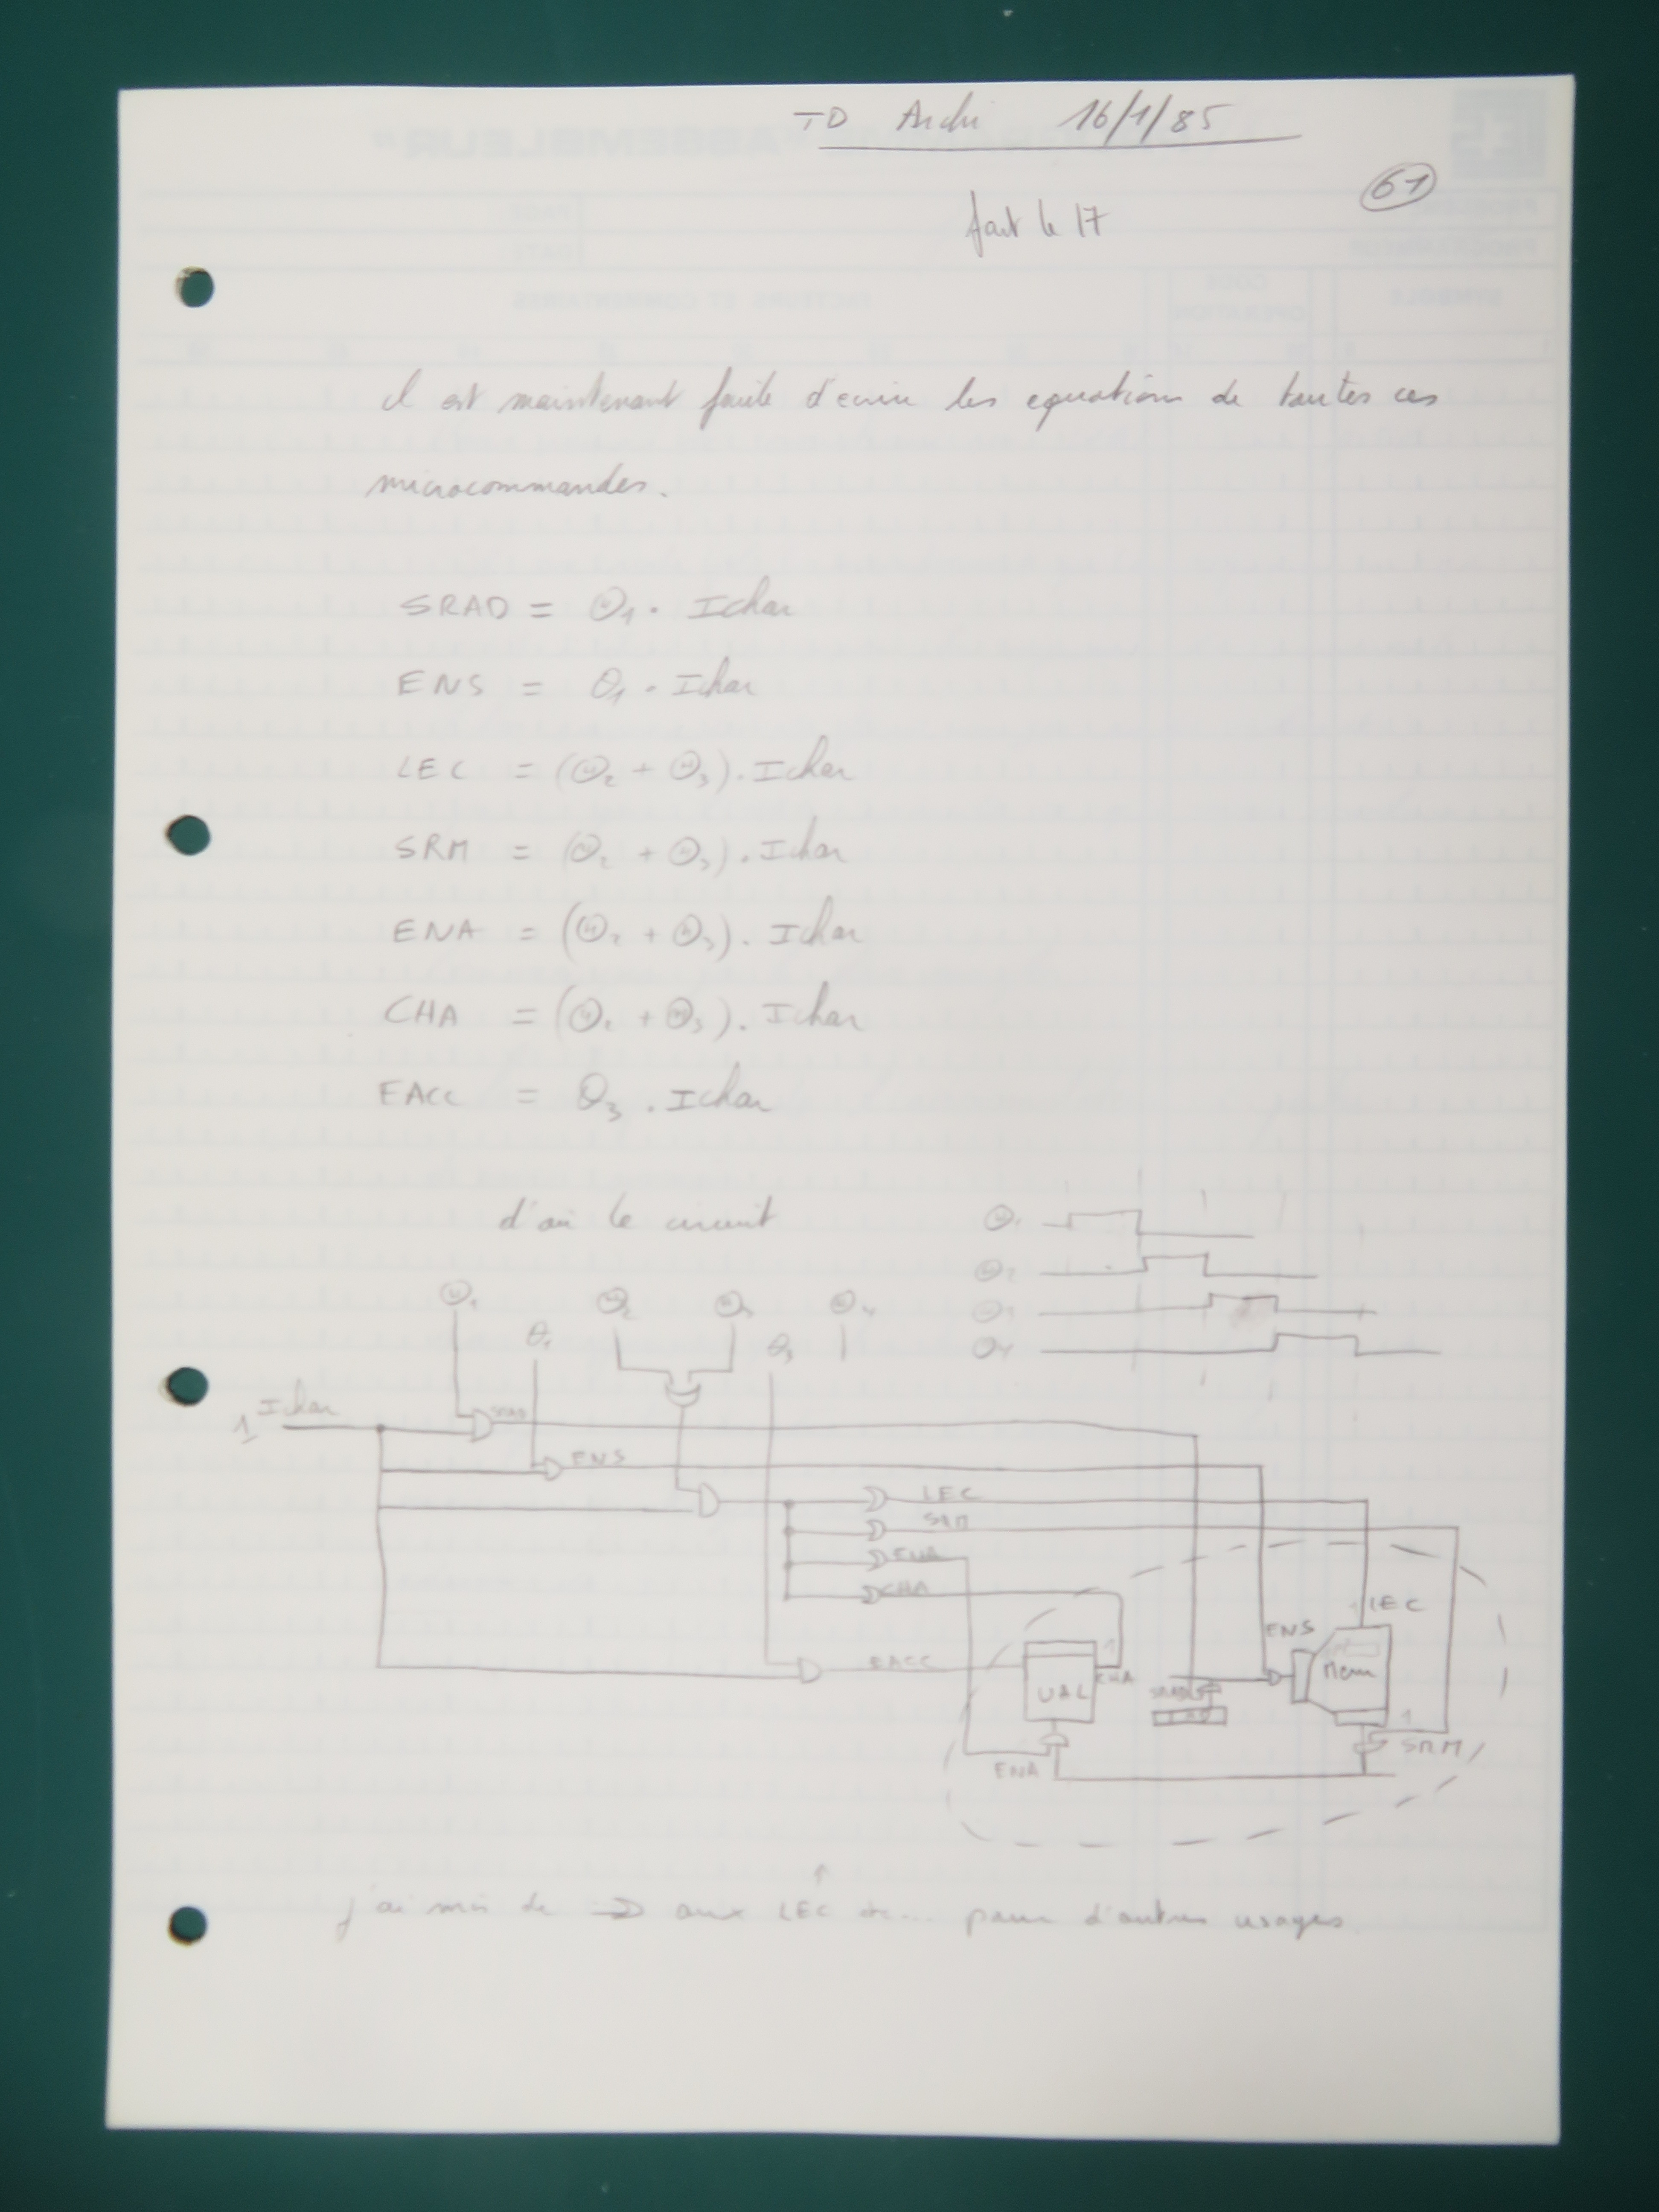 TD Archi 16/1/85
61
fait le 17
il est maintenant facile d'ecrire les equations de toutes ces
microcommandes.
SRAD = Θ₁ . Ichar
ENS = θ₁ . Ichar
LEC = (Θ₂ + Θ₃) . Ichar
SRM = (Θ₂ + Θ₃) . Ichar
ENA = (Θ₂ + Θ₃) . Ichar
CHA = (Θ₂ + Θ₃) . Ichar
EACC = θ₃ . Ichar
d'où le circuit
Θ₁
Θ₂
Θ₃
Θ₄
Θ₁ Θ₂ Θ₃ Θ₄
θ₁ θ₃
1 Ichar
SRAD
ENS
LEC
SRM
ENA
CHA
EACC
LEC
ENS
1
CHA
UAL
SRAD
Mem
1
SRM
ENA
j'ai mis de aux LEC etc... pour d'autres usages.